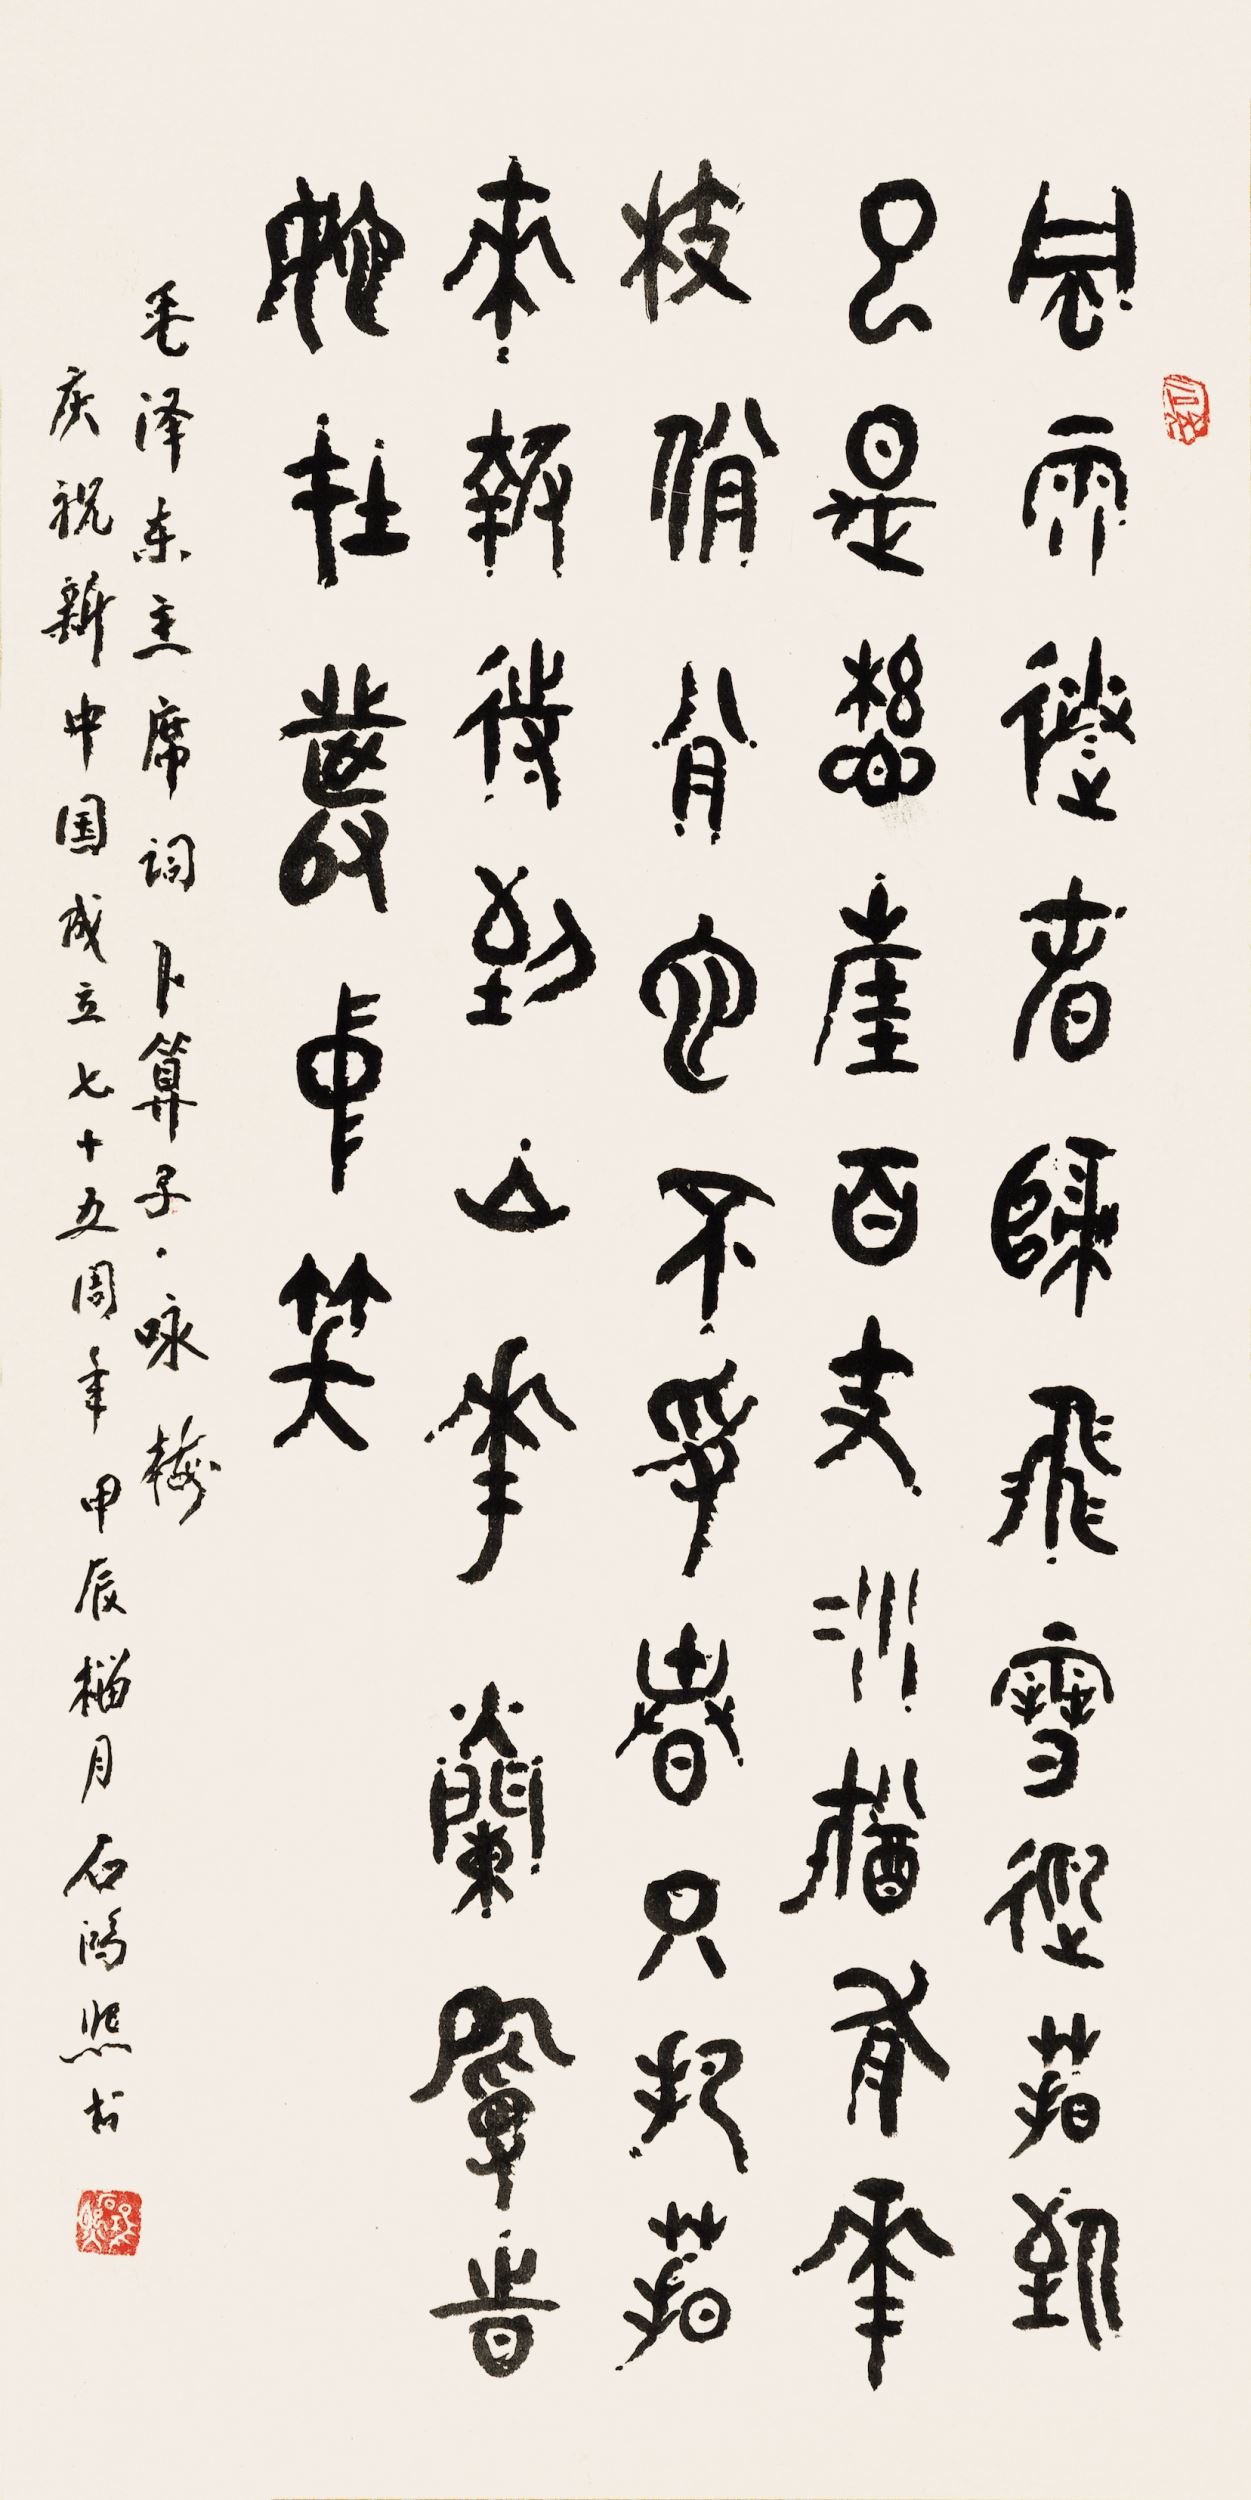 風雨送春歸飛雪迎春到
已是懸崖百丈冰猶有花
枝俏俏也不爭春只把春
來報待到山花爛漫時
她在叢中笑
毛泽东主席词 卜算子·咏梅
庆祝新中国成立七十五周年 甲辰榴月 石鸿熙书